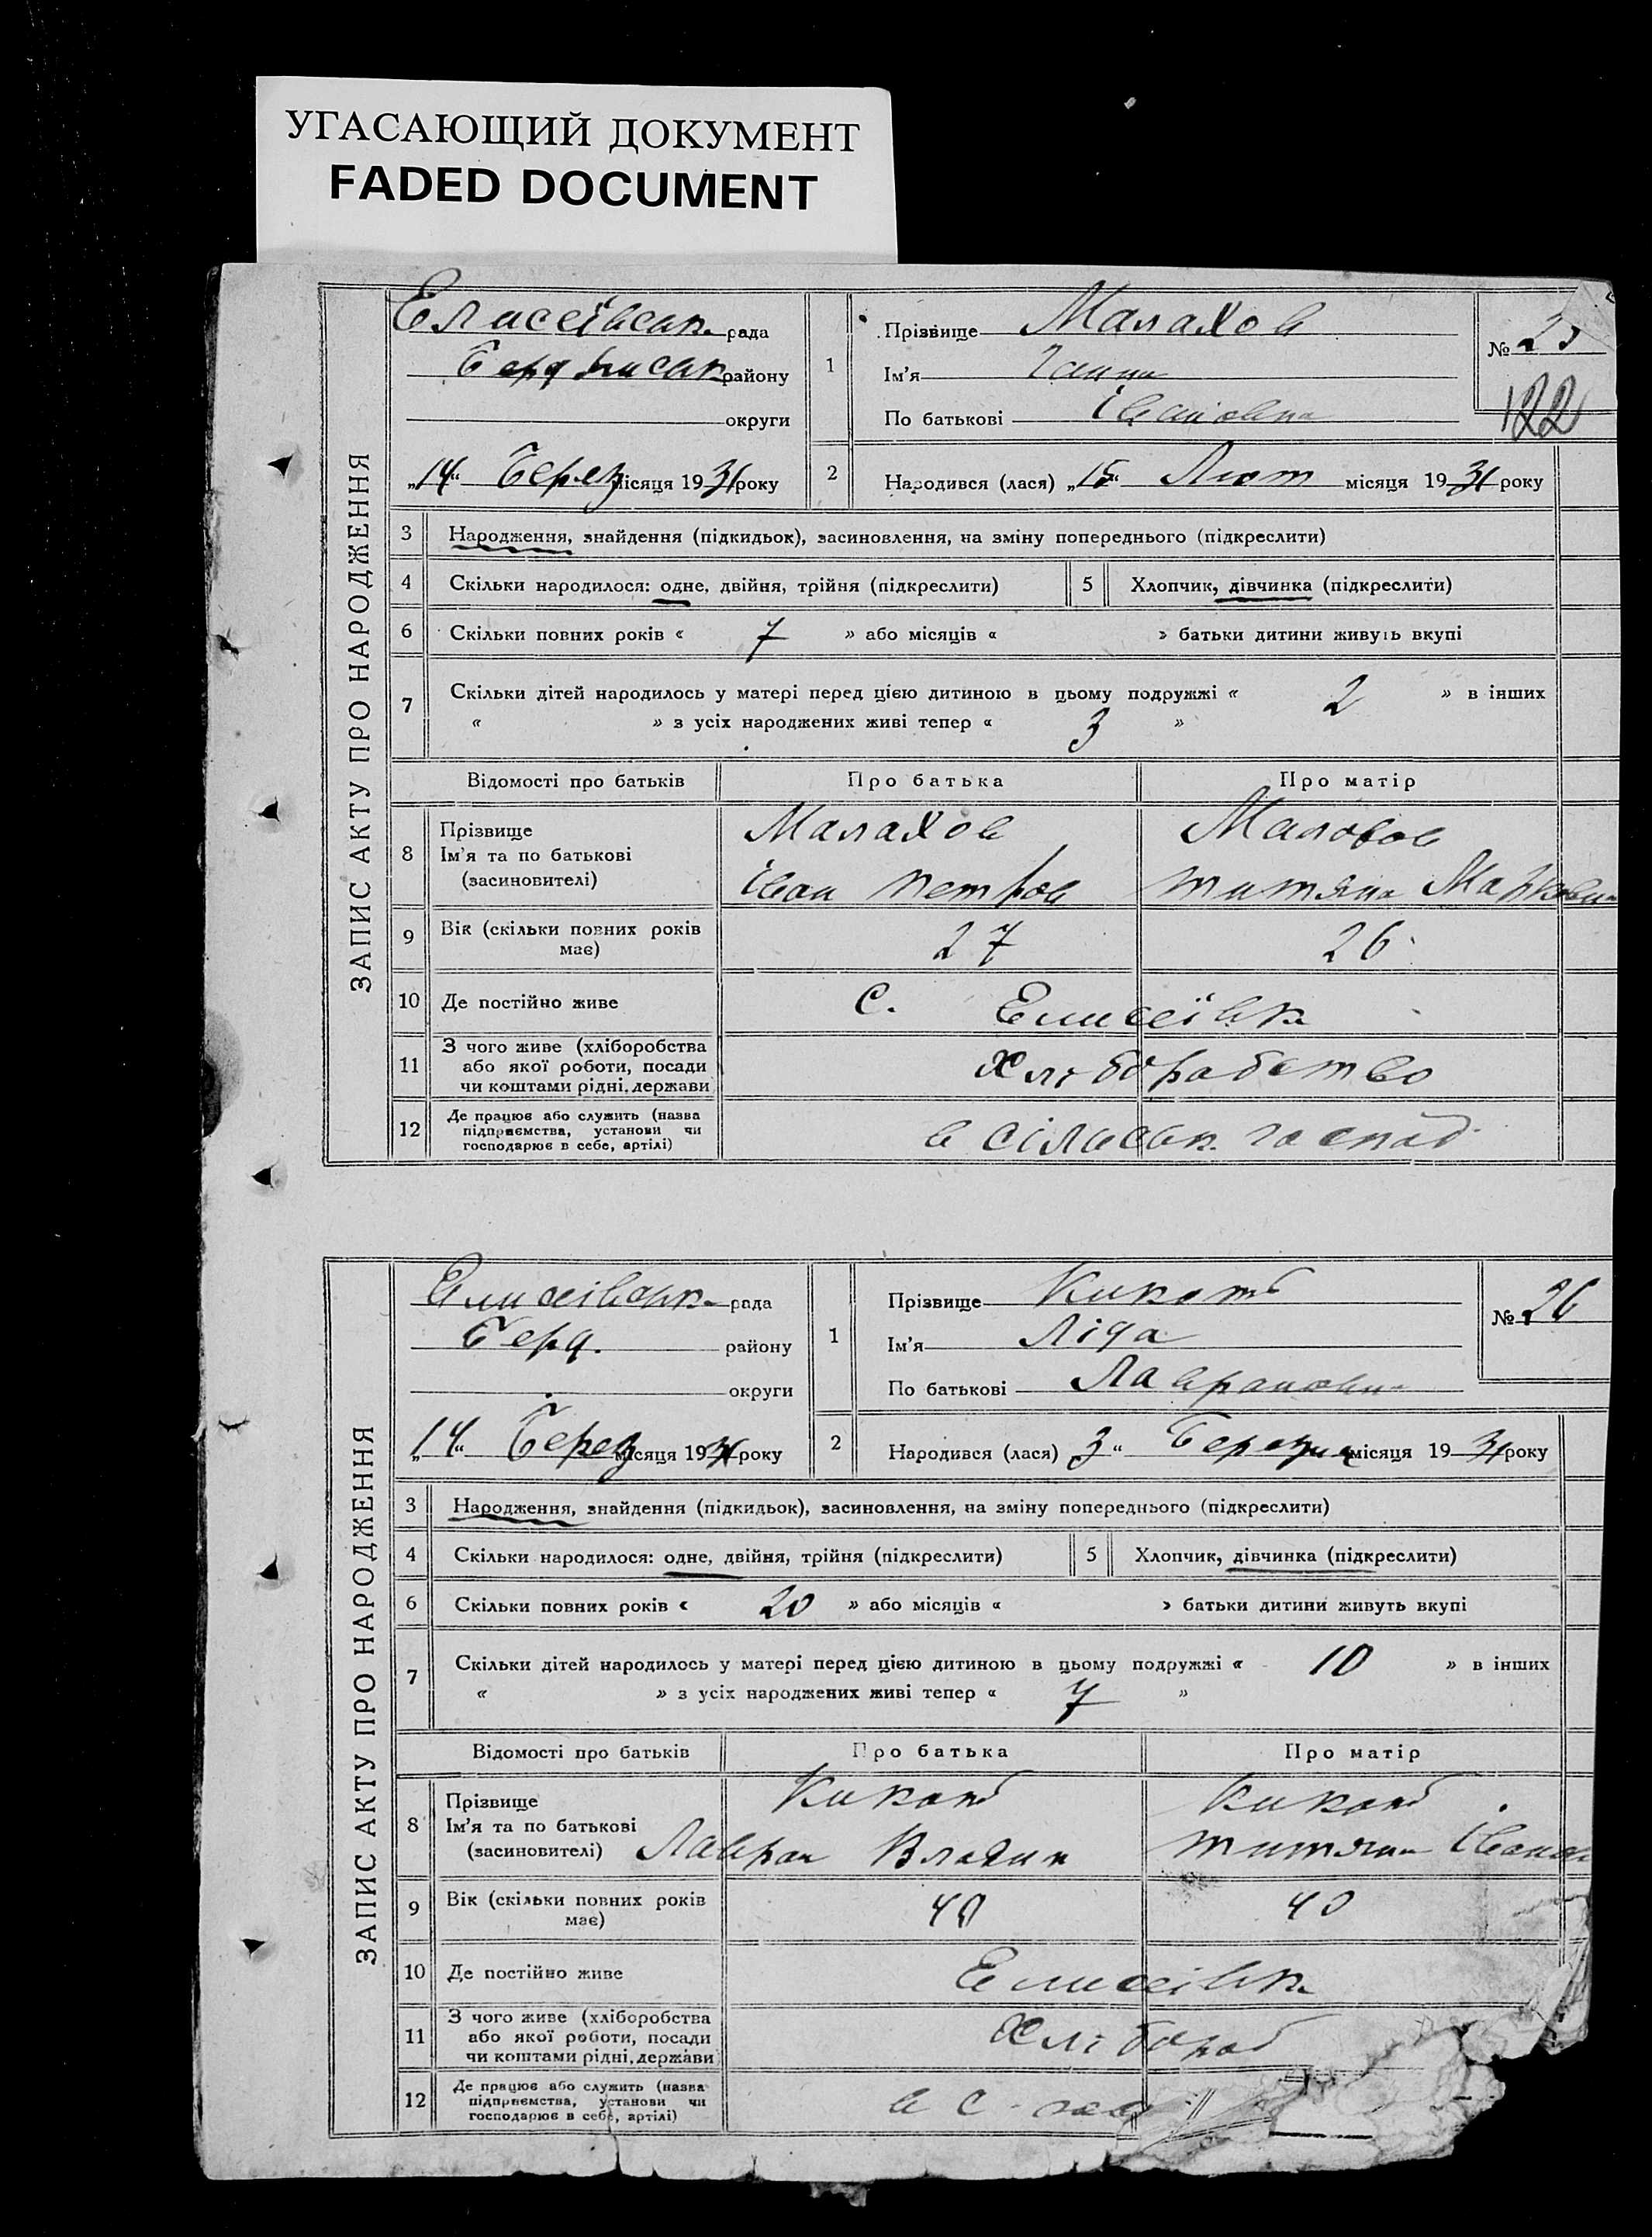 УГАСАЮЩИЙ ДОКУМЕНТ
FADED DOCUMENT
ЗАПИС АКТУ ПРО НАРОДЖЕННЯ
Елисеївськ. рада
Бердянськ району
округи
„14“ Берез місяця 1931 року
1
Прізвище Малахов
Ім'я Ганна
По батькові Івановна
№ 25
122
2
Народився (лася) „15“ Лют місяця 1931 року
3 Народження, знайдення (підкидьок), засиновлення, на зміну попереднього (підкреслити)
4 Скільки народилося: одне, двійня, трійня (підкреслити)
5 Хлопчик, дівчинка (підкреслити)
6 Скільки повних років « 7 » або місяців « » батьки дитини живуть вкупі
7 Скільки дітей народилось у матері перед цією дитиною в цьому подружжі « 2 » в інших
« » з усіх народжених живі тепер « 3 »
Відомості про батьків Про батька Про матір
8 Прізвище
Ім'я та по батькові
(засиновителі)
Малахов
Іван Петров
Малахов
9 Вік (скільки повних років
має)
27 26
10 Де постійно живе с. Елисеївк
11 З чого живе (хліборобства
або якої роботи, посади
чи коштами рідні, держави
Хліборобство
12 Де працює або служить (назва
підприємства, установи чи
господарює в себе, артілі)
в сільськ. господ
ЗАПИС АКТУ ПРО НАРОДЖЕННЯ
Елисеївськ. рада
Берд. району
округи
„14“ Берез місяця 1931 року
1
Прізвище Кикоть
Ім'я Ліда
По батькові
№ 26
2
Народився (лася) 3“ Березня місяця 1931 року
3 Народження, знайдення (підкидьок), засиновлення, на зміну попереднього (підкреслити)
4 Скільки народилося: одне, двійня, трійня (підкреслити)
5 Хлопчик, дівчинка (підкреслити)
6 Скільки повних років « 20 » або місяців « » батьки дитини живуть вкупі
7 Скільки дітей народилось у матері перед цією дитиною в цьому подружжі « 10 » в інших
« » з усіх народжених живі тепер « 7 »
Відомості про батьків Про батька Про матір
8 Прізвище
Ім'я та по батькові
(засиновителі)
Кикоть
Кикоть
9 Вік (скільки повних років
має)
40 40
10 Де постійно живе Елисеївк
11 З чого живе (хліборобства
або якої роботи, посади
чи коштами рідні, держави
Хлібороб
12 Де працює або служить (назва
підприємства, установи чи
господарює в себе, артілі)
в с.